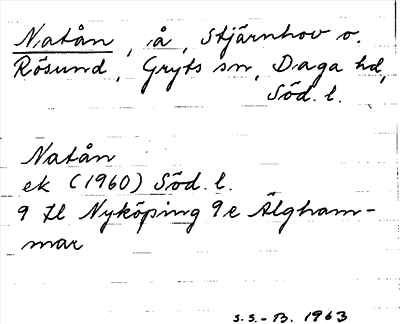 Natån, å, Stjärnhov o.
Rösund, Gryts sn, Daga hd,
Söd. l.
Natån
ek (1960) Söd. l.
9 fl Nyköping 9e Älgham-
mar
S.S.-B. 1963